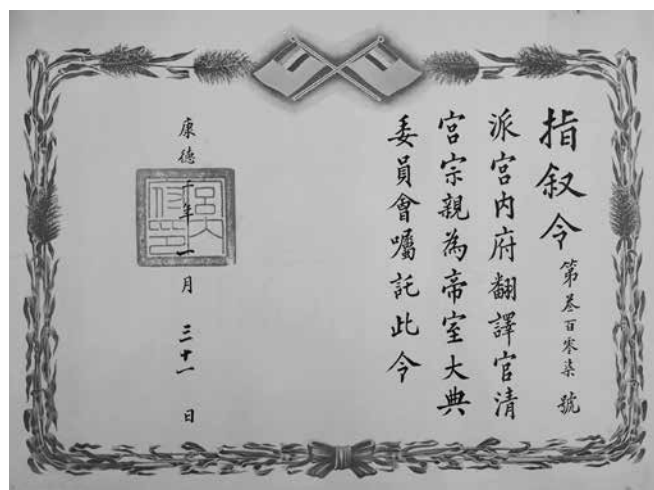 指叙令第叄百零柒號
派宮内府翻譯官清
宮宗親為帝室大典
委員會囑託此令
康德十年一月三十一日